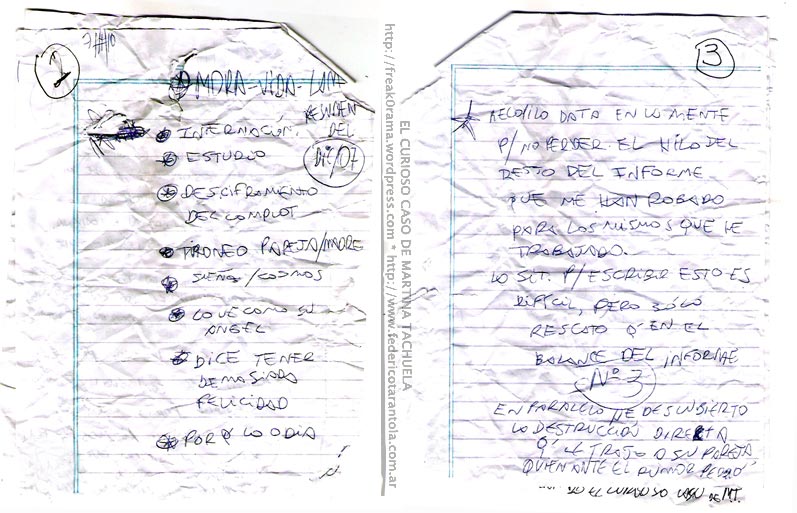 2
MORA-VIDA-LUNA
RESUMEN
DEL
DIC/07
INTERNACIÓN.
ESTUDIO
DESCIFRAMIENTO
DEL COMPLOT
TIRONEO PAREJA/MADRE
SUEÑOS/COSMOS
LO VE COMO SU
ANGEL
DICE TENER
DEMASIADA
FELICIDAD
POR Q' LO ODIA
http://freak0rama.wordpress.com * http://www.federicotarantola.com.ar
EL CURIOSO CASO DE MARTINA TACHUELA
3
DATA EN LA MENTE
P/NO PERDER EL HILO DEL
RESTO DEL INFORME
QUE ME HAN ROBADO
PARA LOS MISMOS QUE HE
TRABAJADO.
LA SIT. P/ESCRIBIR ESTO ES
DIFÍCIL, PERO SÓLO
RESCATO Q' EN EL
BALANCE DEL INFORME
Nº 3
EN PARALELO HE DESCUBIERTO
LA DESTRUCCIÓN DIRECTA
Q' LE TRAJO A SU PAREJA
QUIEN ANTE EL RUMOR PERDIÓ
EL CURIOSO CASO DE MT.